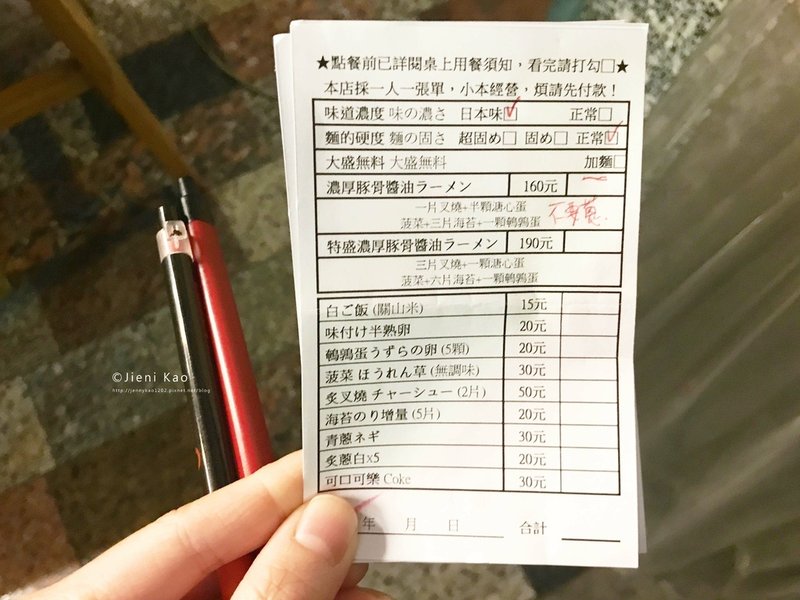 ★點餐前已詳閱桌上用餐須知，看完請打勾□★
本店採一人一張單，小本經營，煩請先付款！
味道濃度 味の濃さ 日本味☑ 正常□
麵的硬度 麵の固さ 超固め□ 固め□ 正常☑
大盛無料 大盛無料 加麵□
濃厚豚骨醬油ラーメン 160元 一
一片叉燒+半顆溏心蛋
菠菜+三片海苔+一顆鵪鶉蛋 不要蔥
特盛濃厚豚骨醬油ラーメン 190元
三片叉燒+一顆溏心蛋
菠菜+六片海苔+一顆鵪鶉蛋
白ご飯 (關山米) 15元
味付け半熟卵 20元
鵪鶉蛋うずらの卵 (5顆) 20元
菠菜 ほうれん草 (無調味) 30元
炙叉燒 チャーシュー (2片) 50元
海苔のり增量 (5片) 20元
青蔥ネギ 30元
炙蔥白x5 20元
可口可樂 Coke 30元
年 月 日 合計
©Jieni Kao
http://jennykao1202.pixnet.net/blog